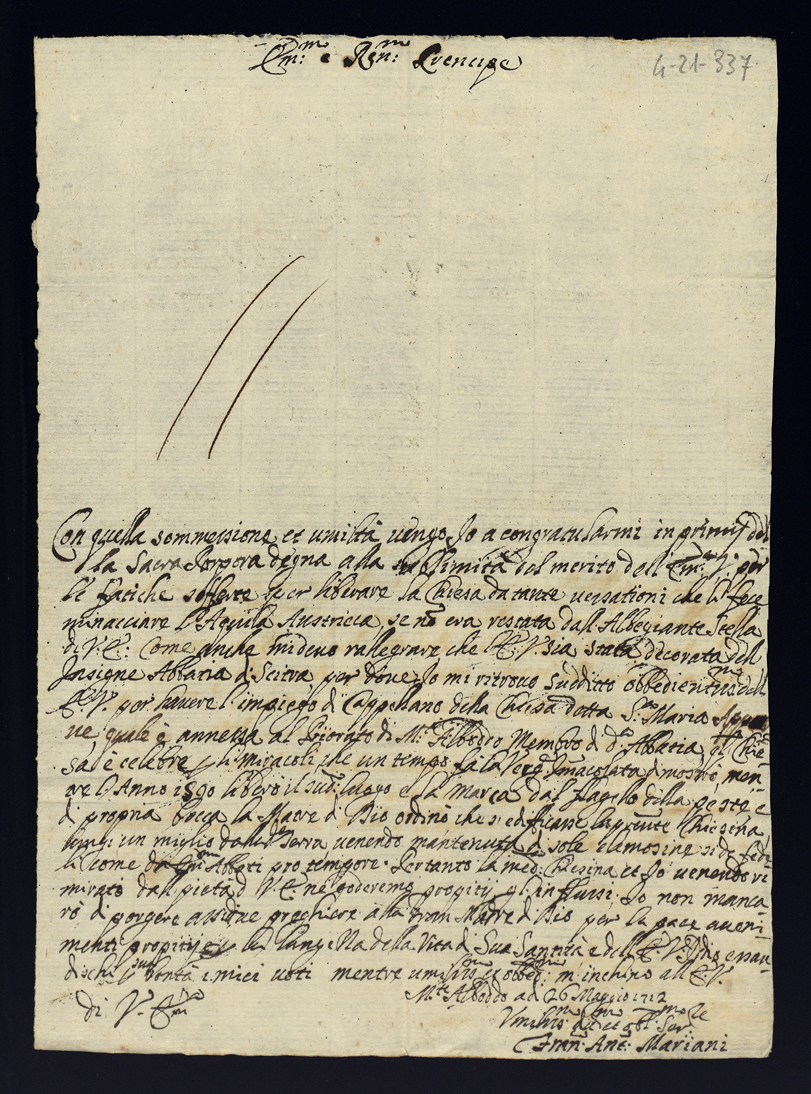 Em:mo e Ren:mo Prencipe
4-21-337
Con quella sommessione et umiltà vengo Io a congratularmi in primis del
la Sacra Porpora degna alla sublimità del merito dell' Em:ma V. per
le fatiche sofferte per liberare la Chiesa da tante versationi che li fece
minacciare l'Aquila Austriaca, se nō era restata dall'Albegiante Stella
di V. E: Come anche mi devo rallegrare che l'E. V. sia stata decorata dell
Insigne Abbatia di Scitria per dove Io mi ritrovo suddito obbedientmo dell
E. V. per havere l'impiego di Cappellano della Chiesa detta S.ta Maria
ve, quale è annessa al Priorato di M.te Albodro Membro di d.a Abbatia, la Chie
sa, è celebre p li miracoli, che un tempo fà la Verg.e Imacolata dimostrò, men
tre l'Anno 1590 liberò il sud.o luogo e la Marca dal flagello della peste e
di propria bocca la Madre di Dio ordinò che si edificasse la pnte Chiesina
lungi un miglio dalla d.a Terra, venendo mantenuta di sole elemosine
come Abbati pro tempore. Pertanto la med: Chiesina et Io venendo ri
mirato dall pietà di V. E. ne goderemo propitij gl'influssi. Io non manca
rò di porgere assidue preghiere alla Gran Madre di Dio per li pace aveni
menti propitij e p la lunghezza della Vita di Sua Santità e dell' E. V.
di sua bontà i miei voti mentre umilmo et obbed: m'inchino all' E. V.
di V. Em:ma
M.te Albodo ad 26 Maggio 1712
Vmilis:mo et obl: Ser:re
Fran: Ant: Mariani